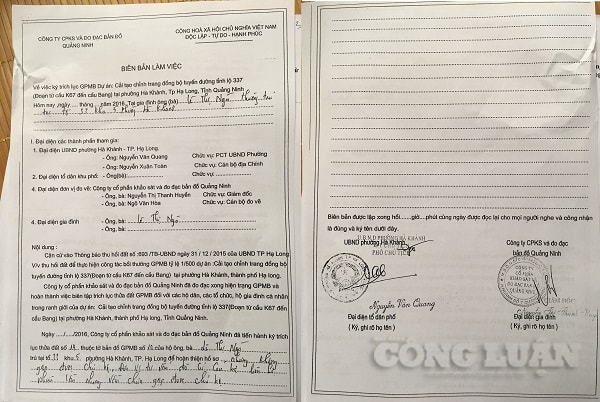 CÔNG TY CPKS VÀ ĐO ĐẠC BẢN ĐỒ
QUẢNG NINH
CỘNG HOÀ XÃ HỘI CHỦ NGHĨA VIỆT NAM
ĐỘC LẬP - TỰ DO - HẠNH PHÚC
BIÊN BẢN LÀM VIỆC
Về việc ký trích lục GPMB Dự án: Cải tạo chỉnh trang đồng bộ tuyến đường tỉnh lộ 337
(Đoạn từ cầu K67 đến cầu Bang) tại phường Hà Khánh, TP Hạ Long, Tỉnh Quảng Ninh
Hôm nay ngày...... tháng.... năm 2016. Tại gia đình ông (bà) Lê Thị Ngà thường trú
tại tổ 33 khu 3 phường Hà Khánh
I. Đại diện các thành phần tham gia:
1. Đại diện UBND phường Hà Khánh - TP. Hạ Long.
- Ông: Nguyễn Văn Quang Chức vụ: PCT UBND Phường
- Ông: Nguyễn Xuân Toàn Chức vụ: Cán bộ địa Chính
2. Đại diện tổ dân khu phố: - Ông(bà):................ Chức vụ: ................
4. Đại diện đơn vị đo vẽ: Công ty cổ phần khảo sát và đo đạc bản đồ Quảng Ninh
- Ông, bà: Nguyễn Thị Thanh Huyền Chức vụ: Giám đốc
- Ông, bà: Ngô Văn Hòa Chức vụ: Cán bộ đo vẽ
4. Đại diện gia đình - Ông, bà: Lê Thị Ngà
Nội dung :
Căn cứ vào Thông báo thu hồi đất số: 690 /TB-UBND ngày 31 / 12 / 2015 của UBND TP Hạ Long
V/v thu hồi đất để thực hiện công tác bồi thường GPMB tỷ lệ 1/500 dự án: Cải tạo chỉnh trang đồng bộ
tuyến đường tỉnh lộ 337(Đoạn từ K67 đến cầu Bang) tại phường Hà Khánh, thành phố Hạ long.
Công ty cổ phần khảo sát và đo đạc bản đồ Quảng Ninh đã đo đạc xong hiện trạng GPMB và
hoàn thành việc biên tập trích lục thửa đất GPMB đối với các hộ dân, các tổ chức, hộ gia đình cá nhân
trong ranh giới của dự án: Cải tạo chỉnh trang đồng bộ tuyến đường tỉnh lộ 337(Đoạn từ K67 đến cầu
Bang) tại phường Hà Khánh, thành phố Hạ long, Tỉnh Quảng Ninh.
Ngày ..../..../2016, Công ty cổ phần khảo sát và đo đạc bản đồ Quảng Ninh đã tiến hành ký trích
lục thửa đất số thuộc tờ bản đồ GPMB số của hộ ông, bà Lê Thị Ngà
trú tại tổ 33 khu phường Hà Khánh, TP Hạ Long để hoàn thiện hồ sơ nhưng không
gặp được chủ hộ.
Biên bản được lập xong hồi.....giờ.....phút cùng ngày được đọc lại cho mọi người nghe và công nhận
là đúng và ký tên dưới đây.
UBND phường Hà Khánh
UBND PHƯỜNG HÀ KHÁNH
PHÓ CHỦ TỊCH
Nguyễn Văn Quang
Công ty CPKS và đo đạc
bản đồ Quảng Ninh
GIÁM ĐỐC
Đại diện tổ dân phố
( Ký, ghi rõ họ tên )
Đại diện gia đình
( Ký, ghi rõ họ tên )
CÔNG LUẬN